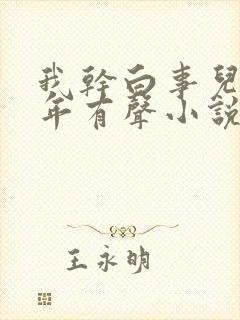 我幹白事兒
年有聲小說
王永明